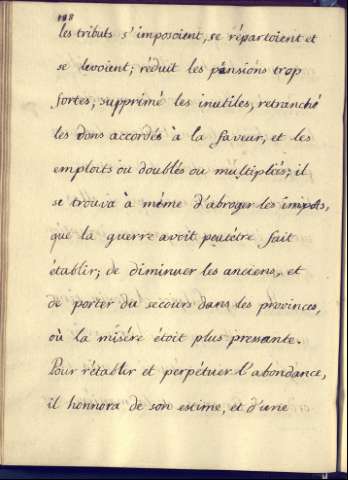 108
les tributs s'imposoient, se répartoient et
se levoient; réduit les pensions trop
fortes, supprimé les inutiles, retranché
les dons accordés à la faveur, et les
emploits ou doublés ou multipliés; il
se trouva à même d'abroger les impots,
que la guerre avoit peutétre fait
établir, de diminuer les anciens, et
de porter du secours dans les provinces,
où la misére étoit plus pressante.
Pour rétablir et perpétuer l'abondance,
il honnora de son estime, et d'une